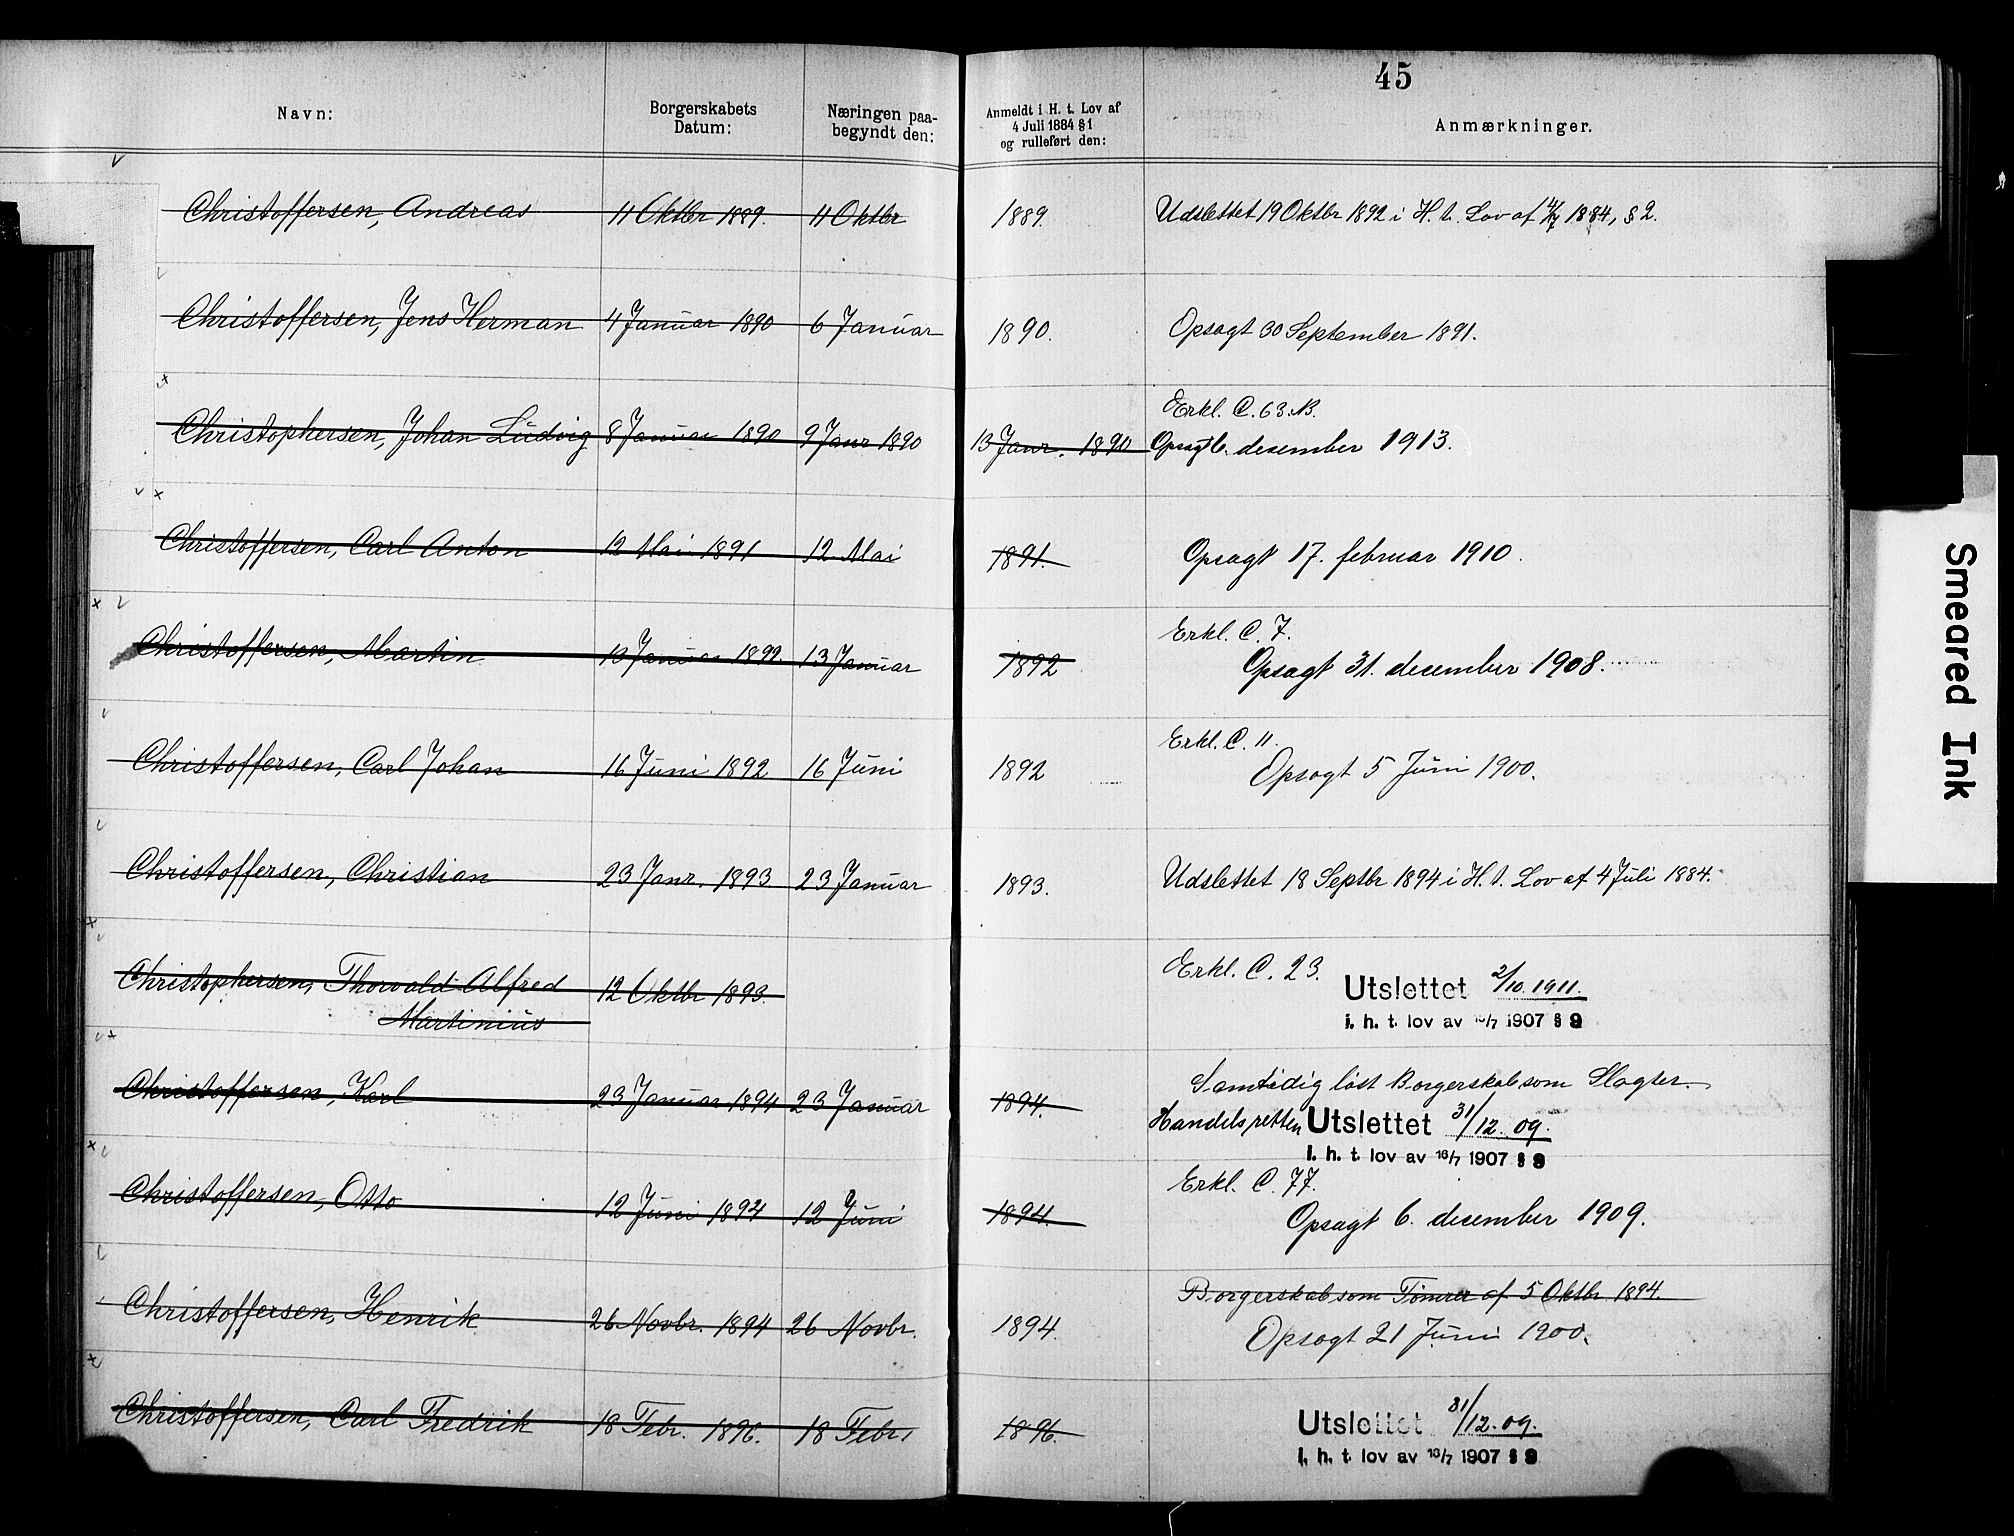 45
Navn: Borgerskabets Datum: Næringen paabegyndt den: Anmeldt i H. t. Lov af 4 Juli 1884 § 1 og rulleført den: Anmærkninger.
Christoffersen, Andreas 11 Oktbr 1889. 11 Oktbr 1889. Udslettet 19 Oktbr 1892 i H. t. Lov af 4/7 1884, § 2.
Christoffersen, Jens Herman 4 Januar 1890 6 Januar 1890. Opsagt 30 September 1891.
Erkl. C. 63. B.
Christophersen, Johan Ludvig 8 Januar 1890 9 Janr 1890 13 Janr. 1890 Opsagt 6. desember 1913.
Christoffersen, Carl Anton 12 Mai 1891 12 Mai 1891. Opsagt 17. februar 1910.
Erkl. C. 7.
Christoffersen, Martin 13 Januar 1892. 13 Januar 1892 Opsagt 31. december 1908.
Erkl. C. 11.
Christoffersen, Carl Johan 16 Juni 1892 16 Juni 1892 Opsagt 5 Juni 1900.
Christoffersen, Christian 23 Janr. 1893 23 Januar 1893. Udslettet 18 Septbr 1894 i H. t. Lov af 4 Juli 1884.
Christophersen, Thorvald Alfred 12 Oktbr 1893. Erkl. C. 23. Utslettet 2/10. 1911.
Martinius i. h. t. lov av 18/7 1907 § 9
Samtidig löst Borgerskab som Slagter.
Christoffersen, Karl 23 Januar 1894 23 Januar 1894. Handelsretten Utslettet 31/12. 09.
i. h. t. lov av 18/7 1907 § 9
Erkl. C. 77.
Christoffersen, Otto 12 Juni 1894 12 Juni 1894. Opsagt 6. december 1909.
Borgerskab som Tömrer af 5 Oktbr 1894.
Christoffersen, Henrik 26 Novbr. 1894 26 Novbr. 1894. Opsagt 21 Juni 1900.
Christoffersen, Carl Fredrik 18 Febr. 1896. 18 Febr 1896. Utslettet 31/12. 09.
i. h. t. lov av 18/7 1907 § 9
Smeared Ink